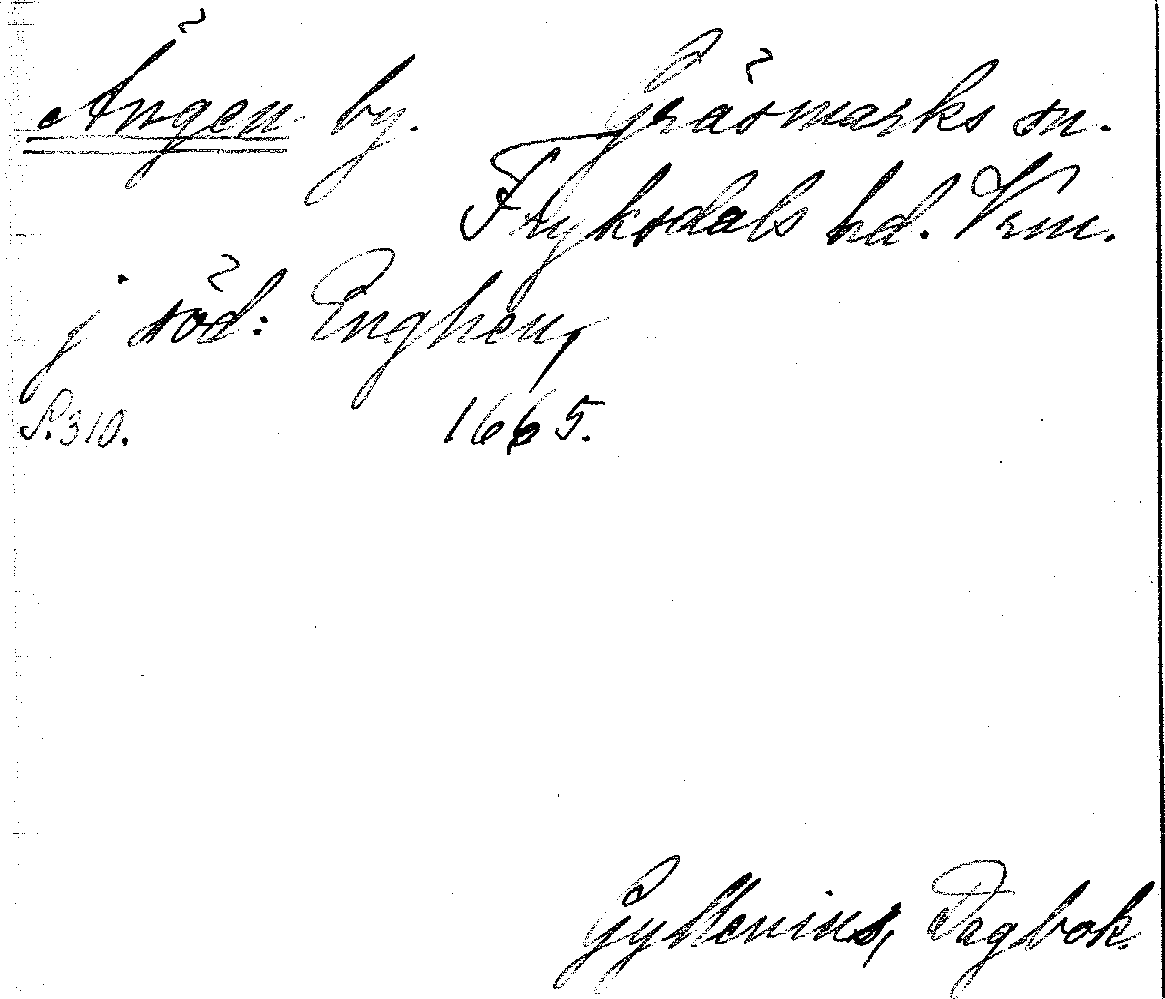 Ängen by. Gräsmarks sn.
Fryksdals hd. Vrm.
j söd: Enghen,
S. 310. 1665.
Gyllenius, Dagbok.